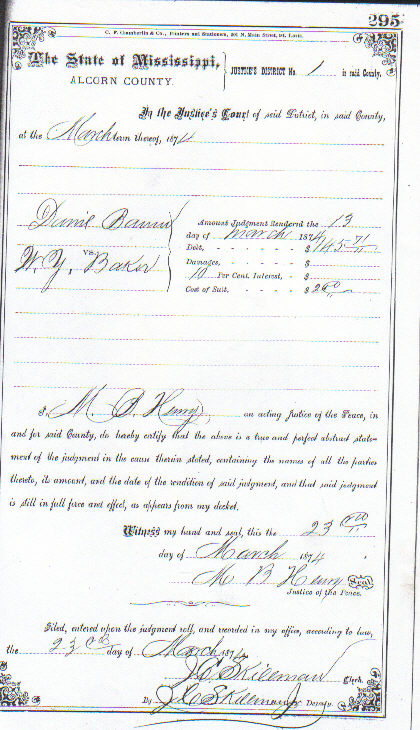 295
C. P. Chamberlin & Co., Printers and Stationers, 201 N. Main Street, St. Louis.
The State of Mississippi,
ALCORN COUNTY.
JUSTICE'S DISTRICT No. 1 in said County.
In the Justice's Court of said District, in said County,
at the March term thereof, 1874
vs.
W. Y. Baker
Amount Judgment Rendered the 13
day of March 1874
Debt, $145 71
Damages, $
10 Per Cent. Interest, $
Cost of Suit, $2 60
I, M. B. Henry, an acting Justice of the Peace, in
and for said County, do hereby certify that the above is a true and perfect abstract state-
ment of the judgment in the cause therein stated, containing the names of all the parties
thereto, its amount, and the date of the rendition of said judgment, and that said judgment
is still in full force and effect, as appears from my docket.
Witness my hand and seal, this the 23
day of March 1874
M B Henry Seal
Justice of the Peace.
Filed, entered upon the judgment roll, and recorded in my office, according to law,
the 23 day of March 1874
Clerk.
By Deputy.